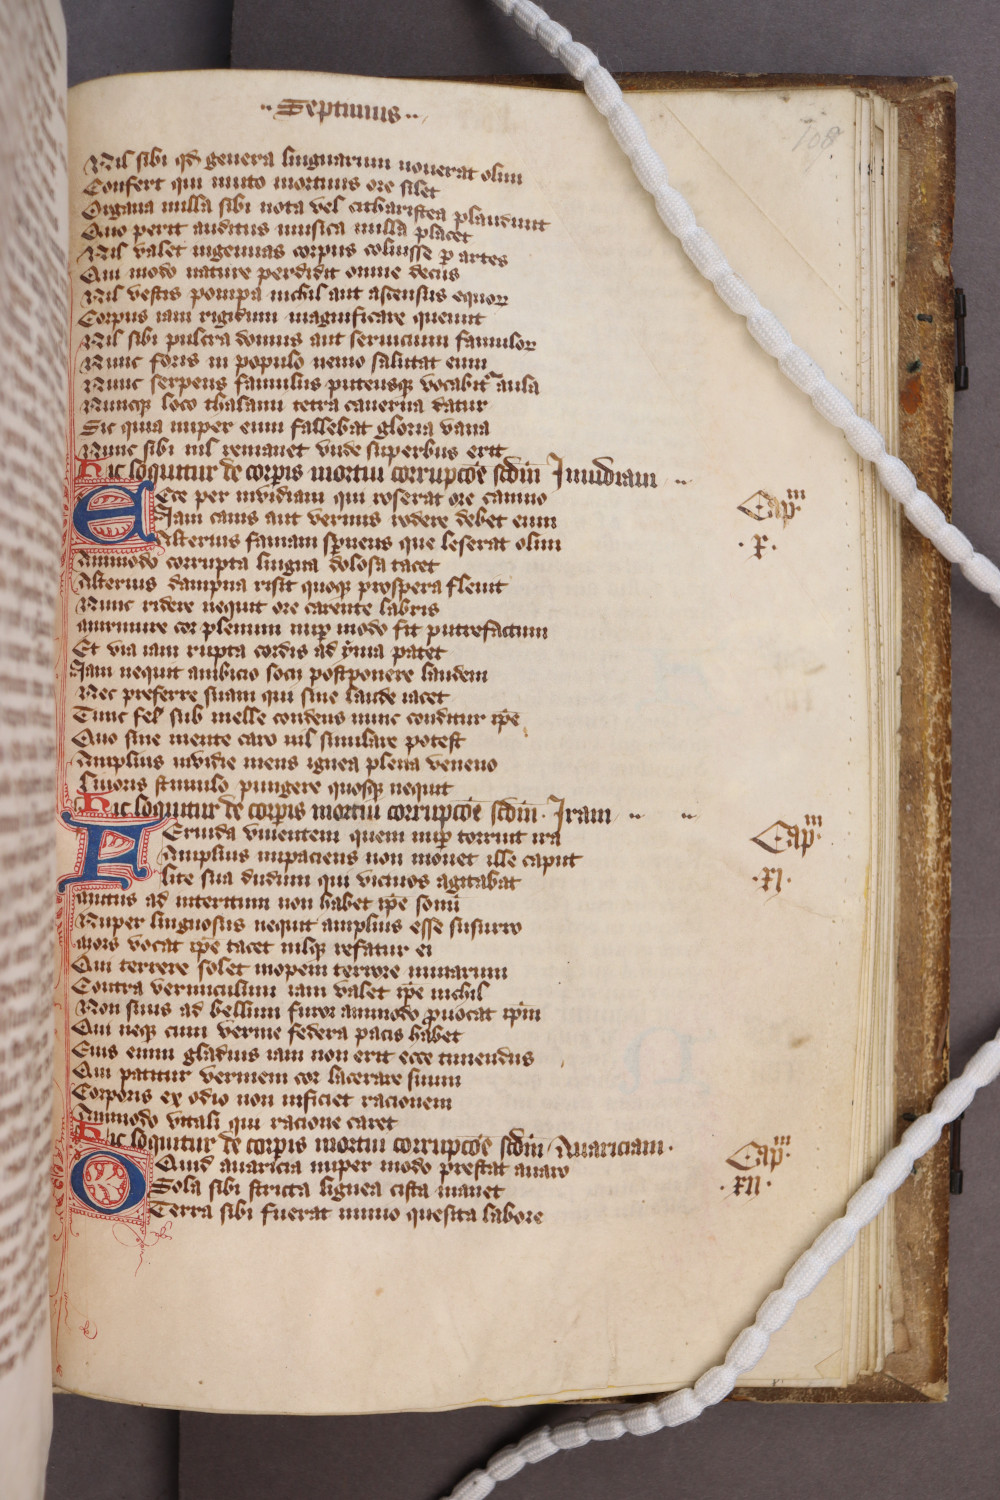 ·· Septimus ··
108
Nil sibi qd genera linguarum nouerat olim
Confert qui muto mortuus ore silet
Organa nulla sibi nota vel citharistea plaudunt
Quo perit auditus musica nulla placet
Nil valet ingenuas corpus coluisse p artes
Qui modo nature perdidit omne decus
Nil vestis pompa nichil aut ascensus equoꝝ
Corpus iam rigidum magnificare queunt
Nil sibi pulcra domus aut seruicium famuloꝝ
Nunc foris in populo nemo salutat eum
Nunc serpens famulus puteusqꝫ vocabitᷣ aula
Nuncqꝫ loco thalami tetra cauerna datur
Sic quia nuper eum fallebat gloria vana
Nunc sibi nil remanet vnde superbus erit
Hic loquitur de corpis mortui corrupcoe scdm Inuidiam ··
Ecce per inuidiam qui roserat ore canino
Iam canis aut vermis rodere debet eum
Alterius famam spuens que leserat olim
Ammodo corrupta lingua dolosa tacet
Alterius dampna risit quoqꝫ prospera fleuit
Nunc ridere nequit ore carente labris
Murmure cor plenum nup modo fit putrefactum
Et via iam rupta cordis ad yma patet
Iam nequit ambicio socij postponere laudem
Nec preferre suam qui sine laude iacet
Tunc fel sub melle condens nunc conditur ipe
Quo sine mente caro nil simulare potest
Amplius inuidie mens ignea plena veneno
Liuoris stimulo pungere quosqꝫ nequit
Capᵐ
·x·
Hic loquitur de corpis mortui corrupcoe scdm · Iram ·· ··
Feruida viuentem quem nup torruit ira
Amplius impaciens non mouet ille caput
Lite sua dudum qui vicinos agitabat
Mutus ad interitum non habet ipe sonu
Nuper linguosus nequit amplius esse susurro
Mors vocat ipe tacet nilqꝫ refatur ei
Qui terrere solet inopem terrore minarum
Contra vermiculum iam valet ipe nichil
Non suus ad bellum furor ammodo puocat ipm
Qui neqꝫ cum verme federa pacis habet
Eius enim gladius iam non erit ecce timendus
Qui patitur vermem cor lacerare suum
Corporis ex odio non inficiet racionem
Ammodo vitali qui racione caret
Capᵐ
·xi·
Hic loquitur de corpis mortui corrupcoe scdm Auariciam ·
Quid auaricia nuper modo prestat auaro
Sola sibi stricta lignea cista manet
Terra sibi fuerat nimio quesita labore
Capᵐ
·xii·